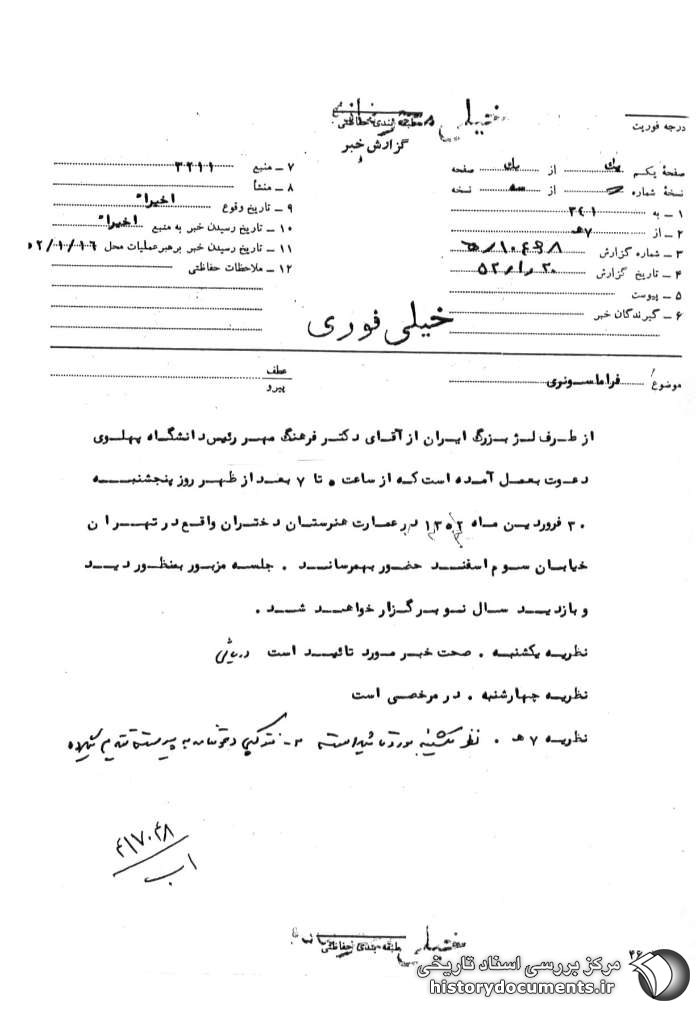 خیلی محرمانه
طبقه بندی حفاظتی
گزارش خبر
درجه فوریت
صفحهٔ یکم یك از یك صفحه
نسخهٔ شماره از سه نسخه
۱ ــ به ۳۴۱
۲ ــ از ۷هـ
۳ ــ شماره گزارش ۱۰۶۴۸/۵
۴ ــ تاریخ گزارش ۵۲/۱/۲۰
۵ ــ پیوست
۶ ــ گیرندگان خبر
۷ ــ منبع ۳۲۱۱
۸ ــ منشأ
۹ ــ تاریخ وقوع اخیراً
۱۰ ــ تاریخ رسیدن خبر به منبع اخیراً
۱۱ ــ تاریخ رسیدن خبر برهبرعملیات محل ۵۲/۱/۱۶
۱۲ ــ ملاحظات حفاظتی
خیلی فوری
موضوع فراماسونری
عطف
پیرو
از طرف لژ بزرگ ایران از آقای دکتر فرهنگ مهر رئیس دانشگاه پهلوی
دعوت بعمل آمده است که از ساعت ۵ تا ۷ بعد از ظهر روز پنجشنبه
۳۰ فروردین ماه ۱۳۵۲ در عمارت هنرستان دختران واقع در تهران
خیابان سوم اسفند حضور بهمرساند . جلسه مزبور بمنظور دید
و بازدید سال نو برگزار خواهد شد .
نظریه یکشنبه . صحت خبر مورد تائید است
نظریه چهارشنبه . در مرخصی است
نظریه ۷ هـ . نظر یکشنبه مورد تائید است
۴۱۷۰۴۸
خیلی محرمانه
طبقه بندی حفاظتی
مرکز بررسی اسناد تاریخی
historydocuments.ir